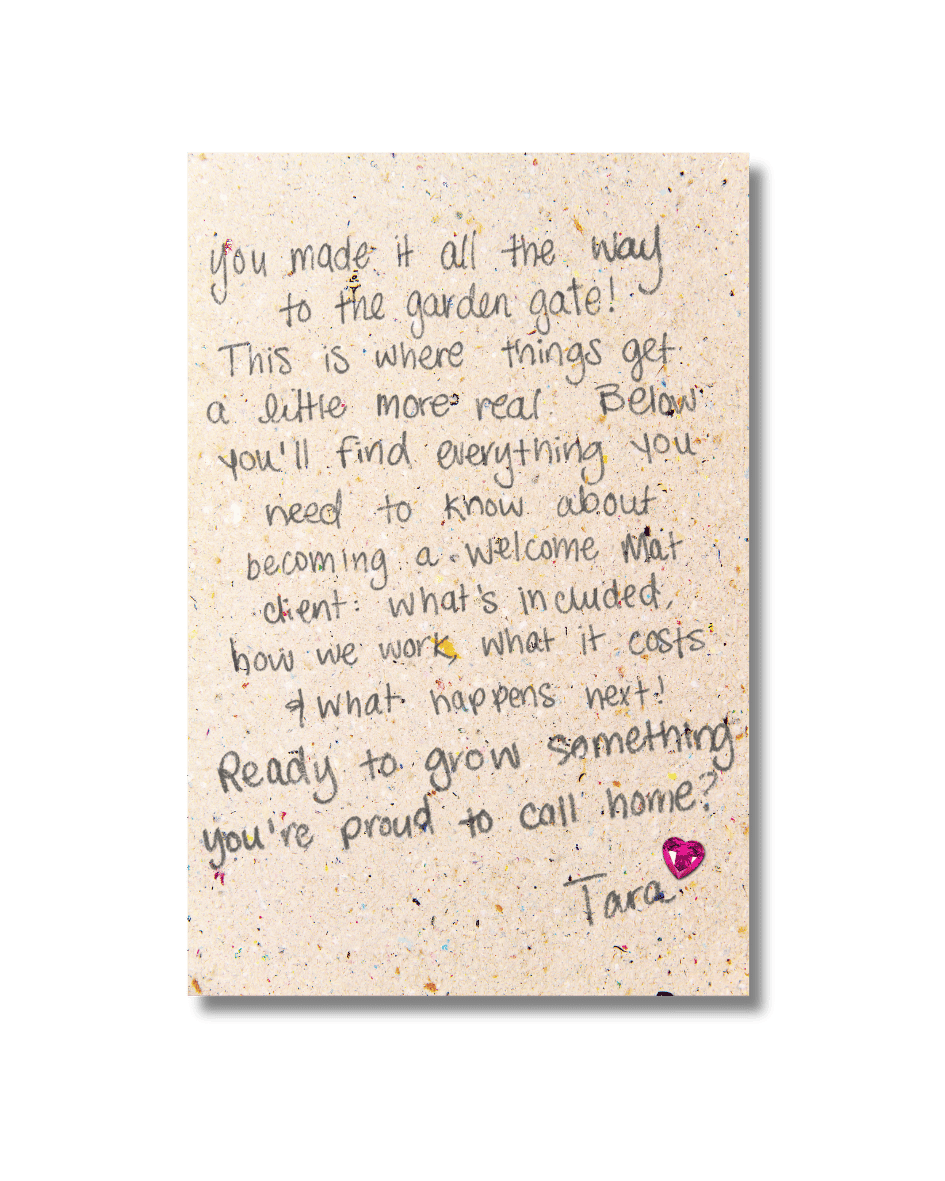 you made it all the way
to the garden gate!
This is where things get
a little more real. Below
you'll find everything you
need to know about
becoming a Welcome Mat
client: what's included,
how we work, what it costs
& what happens next!
Ready to grow something
you're proud to call home?
Tara